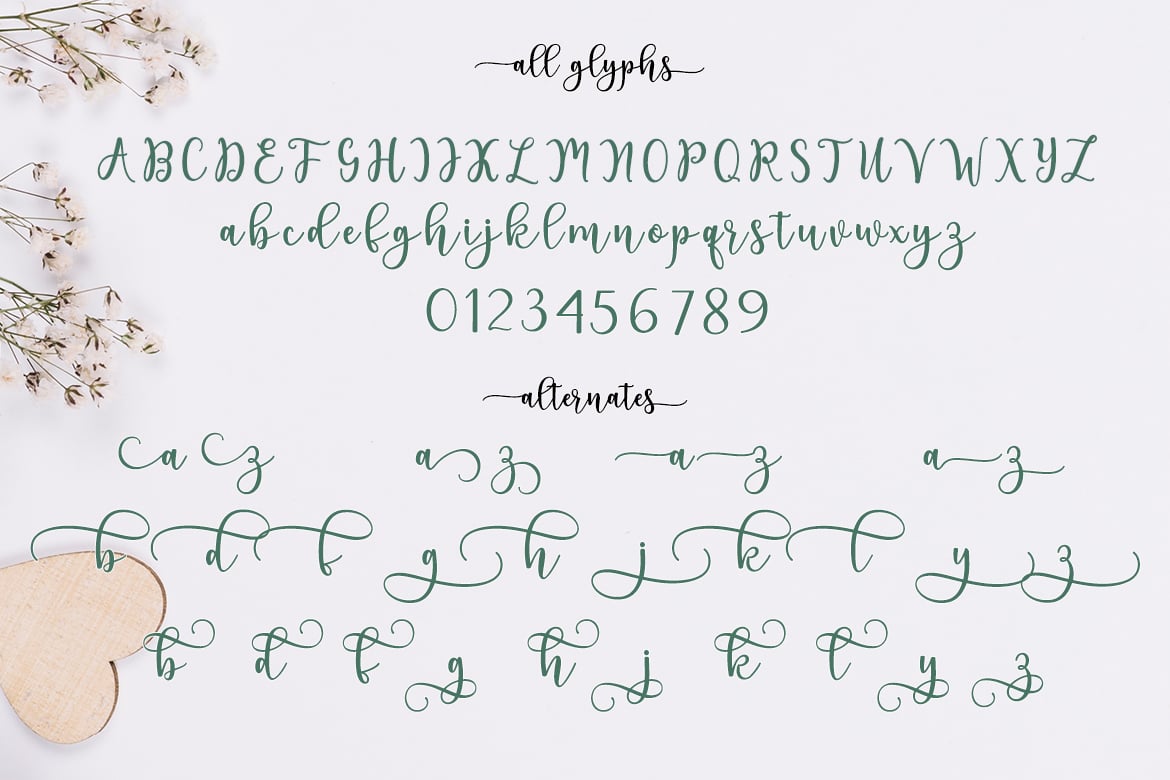 all glyphs
ABCDEFGHIJKLMNOPQRSTUVWXYZ
abcdefghijklmnopqrstuvwxyz
0123456789
alternates
a z a z a z a z
b d f g h j k l y z
b d f g h j k l y z